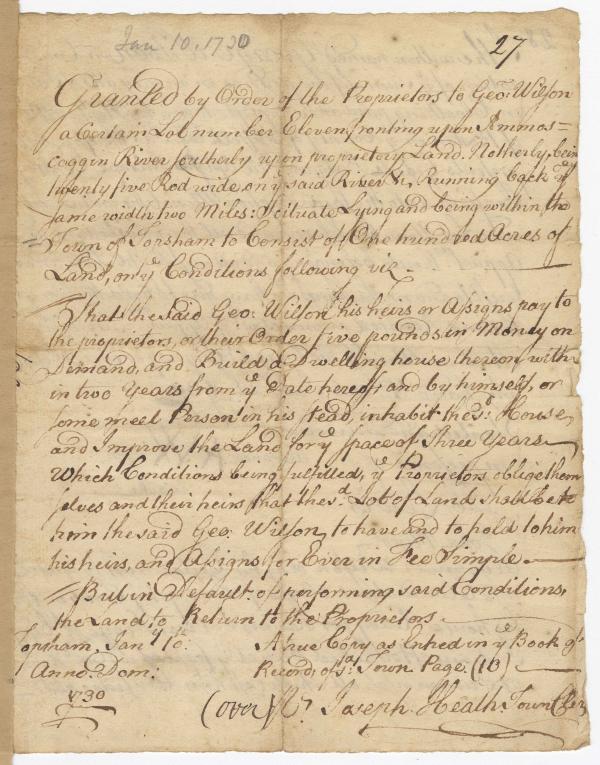 Jan 10. 1730
27
Granted by Order of the Proprietors to Geo: Wilson
a Certain Lot number Eleven fronting upon Ammos=
coggin River southerly upon proprietory Land. Notherly, bein
twenty five Rod wide, on ye said River &, Running back ye
same width two Miles: Scituate Lying and being within the
Town of Topsham to Consist of One hundred Acres of
Land, on ye Conditions following viz.
That the said Geo: Wilson his heirs or Assigns pay to
the proprietors, or their Order five pounds in Money on
Demand, and Build a dwelling house thereon with=
in two Years from ye Date hereof; and by himself, or
some meet Person in his stead, inhabit the sd: House,
and Improve the Land for ye space of Three Years
Which Conditions being fulfilled, ye Proprietors oblige them
selves and their heirs that the sd Lot of Land shall be to
him the said Geo: Wilson, to have and to hold to him
his heirs, and Assigns for Ever in Fee Simple.
But in Default of performing said Conditions,
the Land to Return to the Proprietors
Topsham, Jany 10:
Anno: Dom:
1730
A true Copy as Entred in ye Book of
Records of sd Town Page: (10)
(over) Pr Joseph Heath Town Cler